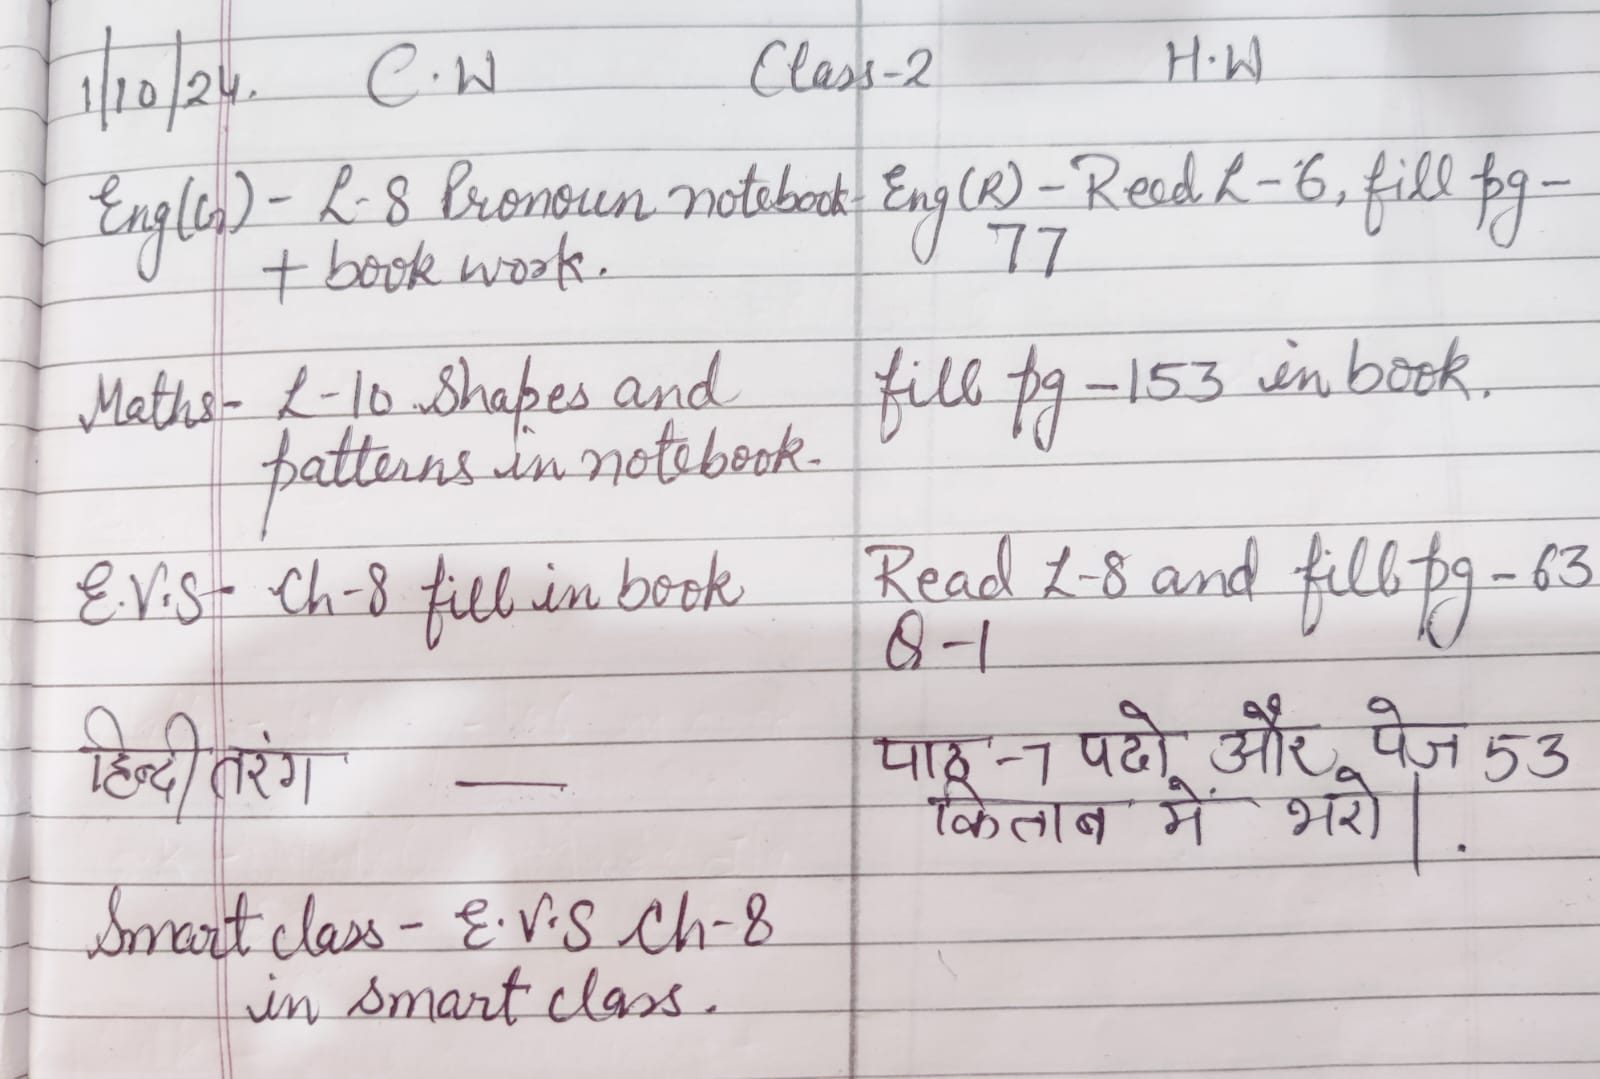 1/10/24. C.W Class-2 H.W
Eng(Gr) - L-8 Pronoun notebook
+ book work.
Eng(R) - Read L-6, fill pg-
77
Maths- L-10 Shapes and
patterns in notebook.
fill pg-153 in book.
E.V.S- Ch-8 fill in book
Read L-8 and fill pg-63
Q-1
हिन्दी तरंग —
पाठ-7 पढो और पेज 53
किताब में भरो|.
Smart class - E.V.S Ch-8
in smart class.